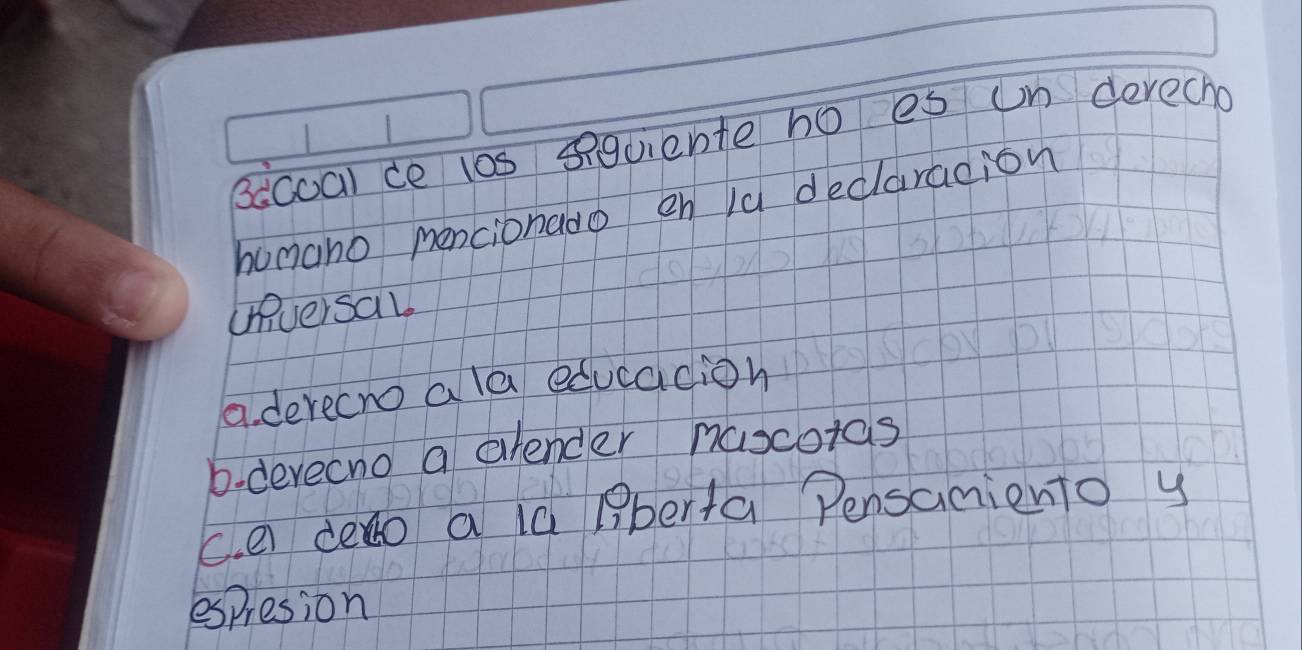 3¿cual de los siguiente no es un derecho
humano mencionado en la declaracion
universal.
a.derecho a la educacion
b.derecho a atender mascotas
c.el a la liberta Pensamiento y
espresion